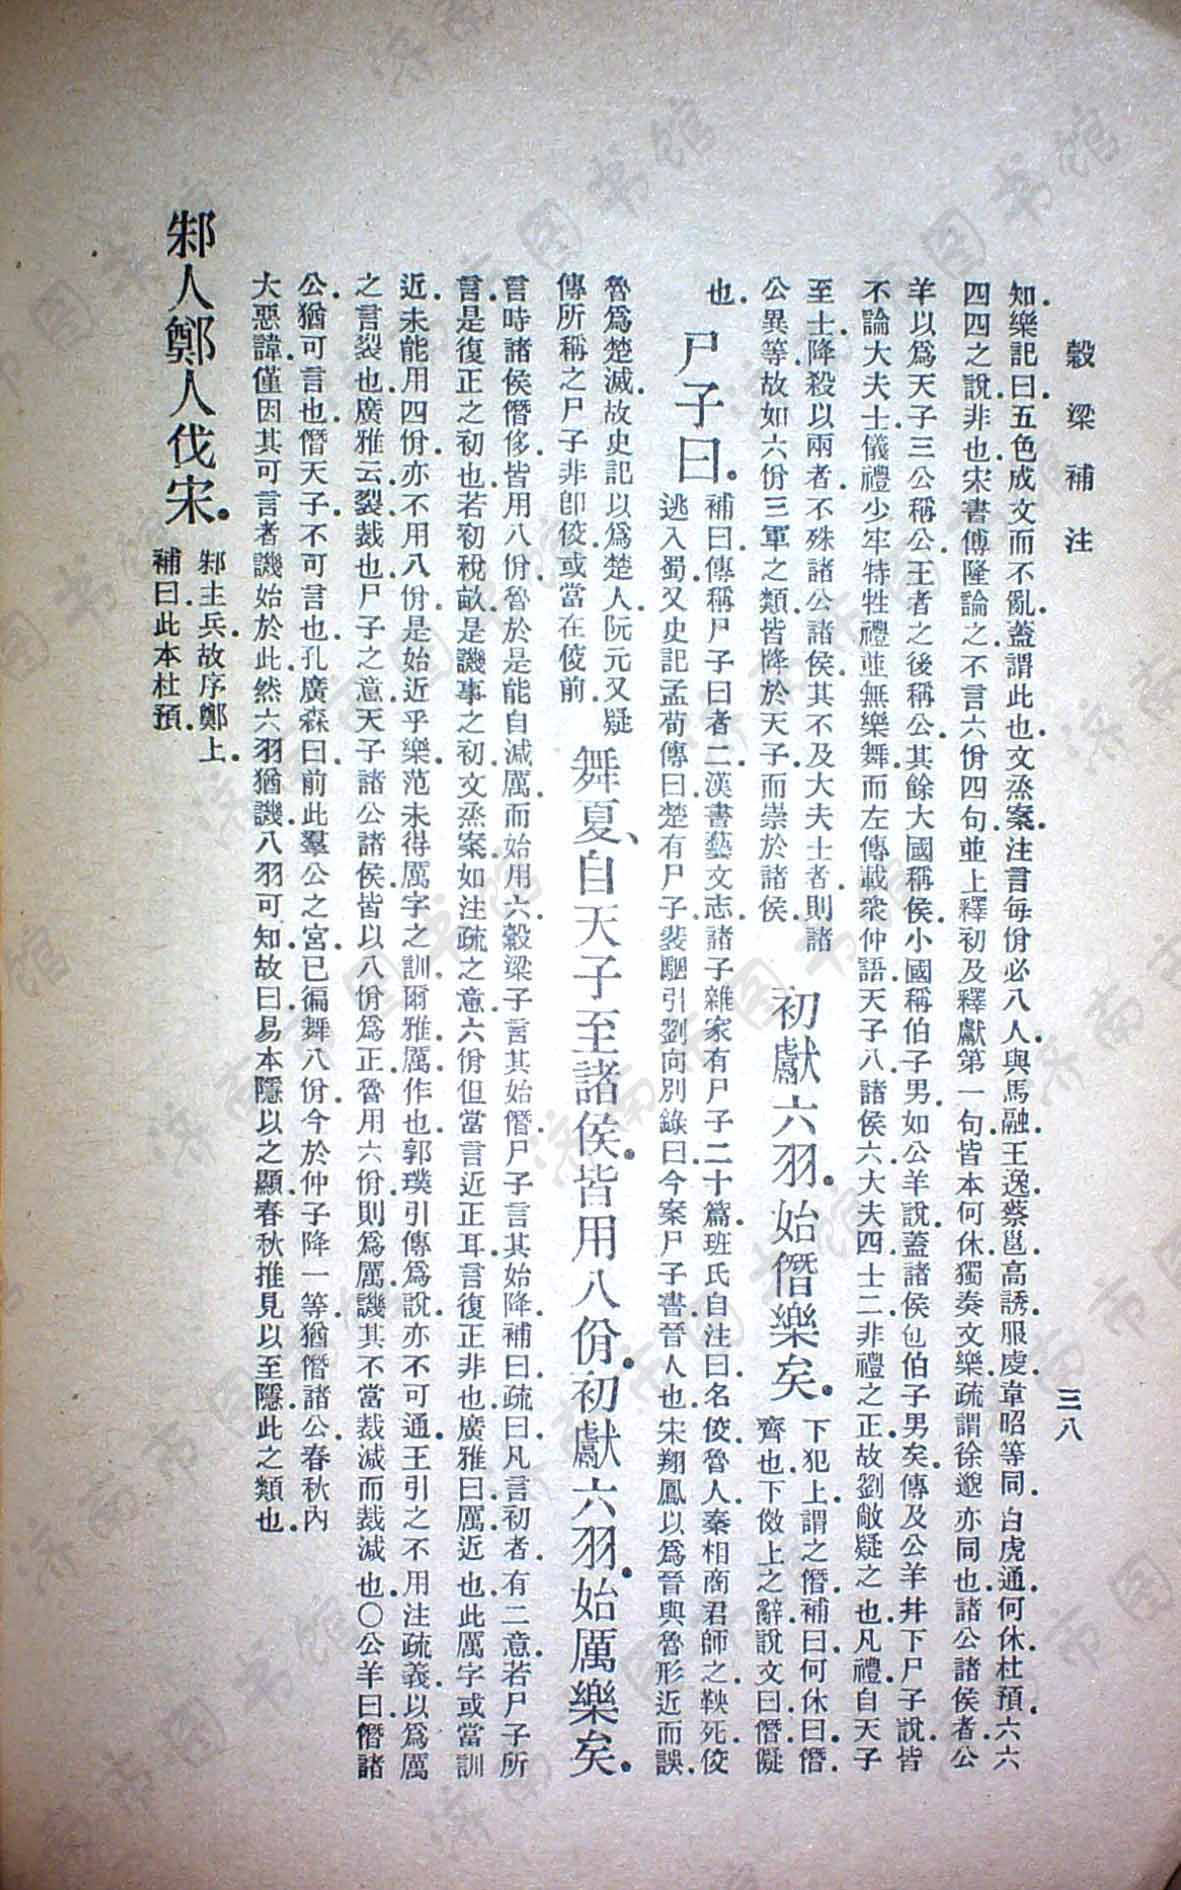 穀梁補注
三八
知。樂記曰。五色成文而不亂。蓋謂此也。文烝案。注言每佾必八人。與馬融。王逸。蔡邕。高誘。服虔。韋昭等同。白虎通。何休。杜預。六六
四四之說。非也。宋書傅隆論之。不言六佾四句。並上釋初及釋獻第一句。皆本何休。獨奏文樂。疏謂徐邈亦同也。諸公諸侯者。公
羊以爲天子三公稱公。王者之後稱公。其餘大國稱侯。小國稱伯子男。如公羊說。蓋諸侯包伯子男矣。傳及公羊井下尸子說。皆
不論大夫士。儀禮少牢特牲禮並無樂舞。而左傳載衆仲語。天子八。諸侯六。大夫四。士二。非禮之正。故劉敞疑之也。凡禮自天子
至士。降殺以兩者。不殊諸公諸侯。其不及大夫士者。則諸
公異等。故如六佾三軍之類。皆降於天子。而崇於諸侯。
初獻六羽。始僭樂矣。
下犯上。謂之僭。補曰。何休曰。僭。
齊也。下傚上之辭。說文曰。僭。儗
也。
尸子曰。
補曰。傳稱尸子曰者二。漢書藝文志。諸子雜家有尸子二十篇。班氏自注曰。名佼。魯人。秦相商君師之。鞅死。佼
逃入蜀。又史記孟荀傳曰。楚有尸子。裴駰引劉向別錄曰。今案尸子書。晉人也。宋翔鳳以爲晉與魯形近而誤。
魯爲楚滅。故史記以爲楚人。阮元又疑
傳所稱之尸子非卽佼。或當在佼前。
舞夏、自天子至諸侯。皆用八佾。初獻六羽。始厲樂矣。
言時諸侯僭侈。皆用八佾。魯於是能自減厲。而始用六。穀梁子言其始僭。尸子言其始降。補曰。疏曰。凡言初者。有二意。若尸子所
言。是復正之初也。若初稅畝。是譏事之初。文烝案。如注疏之意。六佾但當言近正耳。言復正非也。廣雅曰。厲。近也。此厲字或當訓
近。未能用四佾。亦不用八佾。是始近乎樂。范未得厲字之訓。爾雅。厲。作也。郭璞引傳爲說。亦不可通。王引之不用注疏義。以爲厲
之言裂也。廣雅云。裂。裁也。尸子之意。天子諸公諸侯。皆以八佾爲正。魯用六佾。則爲厲。譏其不當裁減而裁減也。○公羊曰。僭諸
公。猶可言也。僭天子。不可言也。孔廣森曰。前此羣公之宮。已徧舞八佾。今於仲子降一等。猶僭諸公。春秋內
大惡諱。僅因其可言者。譏始於此。然六羽猶譏。八羽可知。故曰。易本隱以之顯。春秋推見以至隱。此之類也。
邾人鄭人伐宋。
邾主兵。故序鄭上。
補曰。此本杜預。